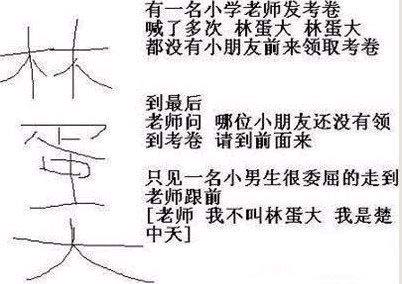 林
蛋
大
有一名小学老师发考卷
喊了多次 林蛋大 林蛋大
都没有小朋友前来领取考卷
到最后
老师问 哪位小朋友还没有领
到考卷 请到前面来
只见一名小男生很委屈的走到
老师跟前
[老师 我不叫林蛋大 我是楚
中天]